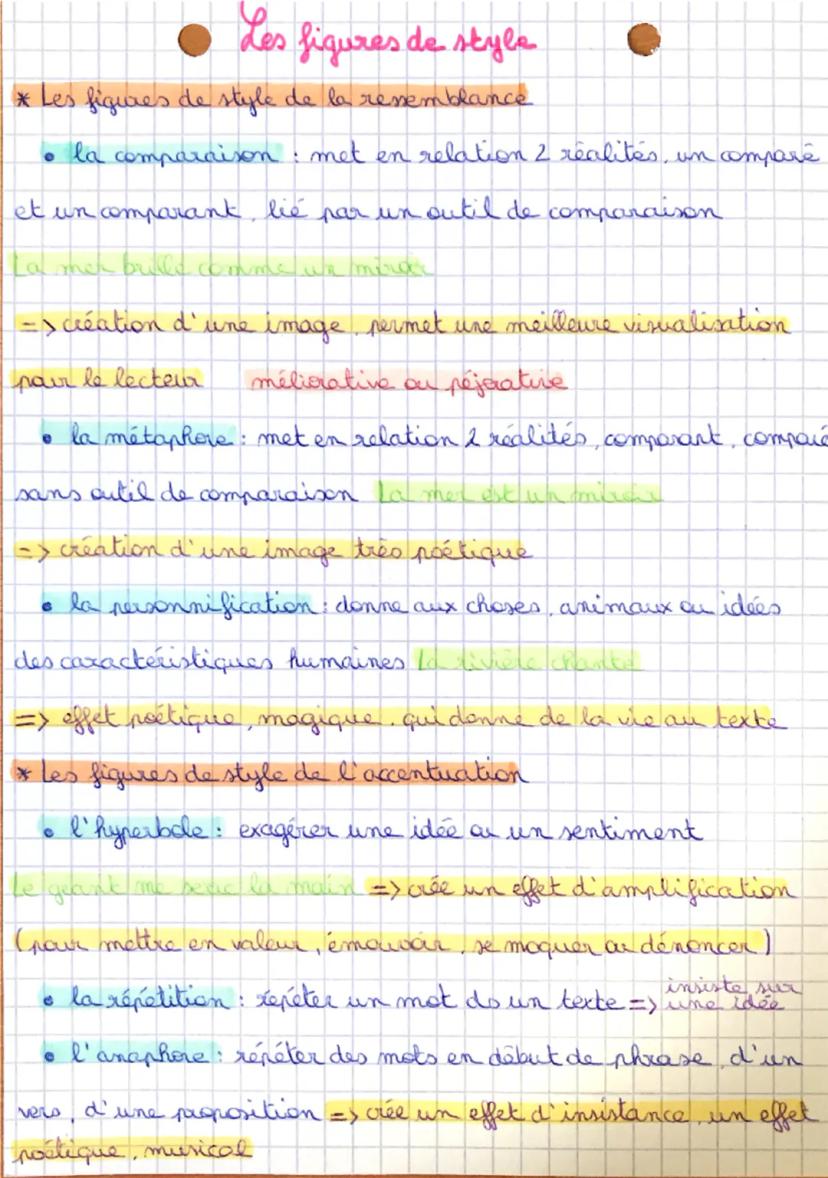 Les figures de style
* Les figures de style de la ressemblance
• la comparaison : met en relation 2 réalités, un comparé
et un comparant, lié par un outil de comparaison
La mer brille comme un miroir
=> création d'une image, permet une meilleure visualisation
pour le lecteur méliorative ou péjorative
• la métaphore : met en relation 2 réalités, comparant, comparé
sans outil de comparaison La mer est un miroir
=> création d'une image très poétique
• la personnification : donne aux choses, animaux ou idées
des caractéristiques humaines La rivière chante
=> effet poétique, magique, qui donne de la vie au texte
* Les figures de style de l'accentuation
• l'hyperbole : exagérer une idée ou un sentiment
Le géant me serre la main => crée un effet d'amplification
(pour mettre en valeur, émouvoir, se moquer ou dénoncer)
• la répétition : répéter un mot ds un texte => insiste sur une idée
• l'anaphore : répéter des mots en début de phrase, d'un
vers, d'une proposition => crée un effet d'insistance, un effet
poétique, musical